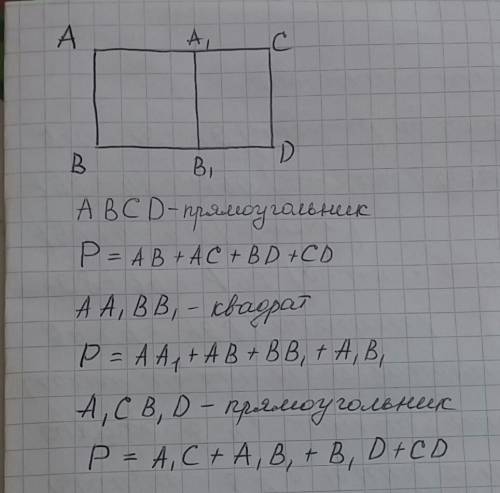 A A₁ C
B B₁ D
ABCD - прямоугольник
P = AB + AC + BD + CD
AA₁BB₁ - квадрат
P = AA₁ + AB + BB₁ + A₁B₁
A₁CB₁D - прямоугольник
P = A₁C + A₁B₁ + B₁D + CD